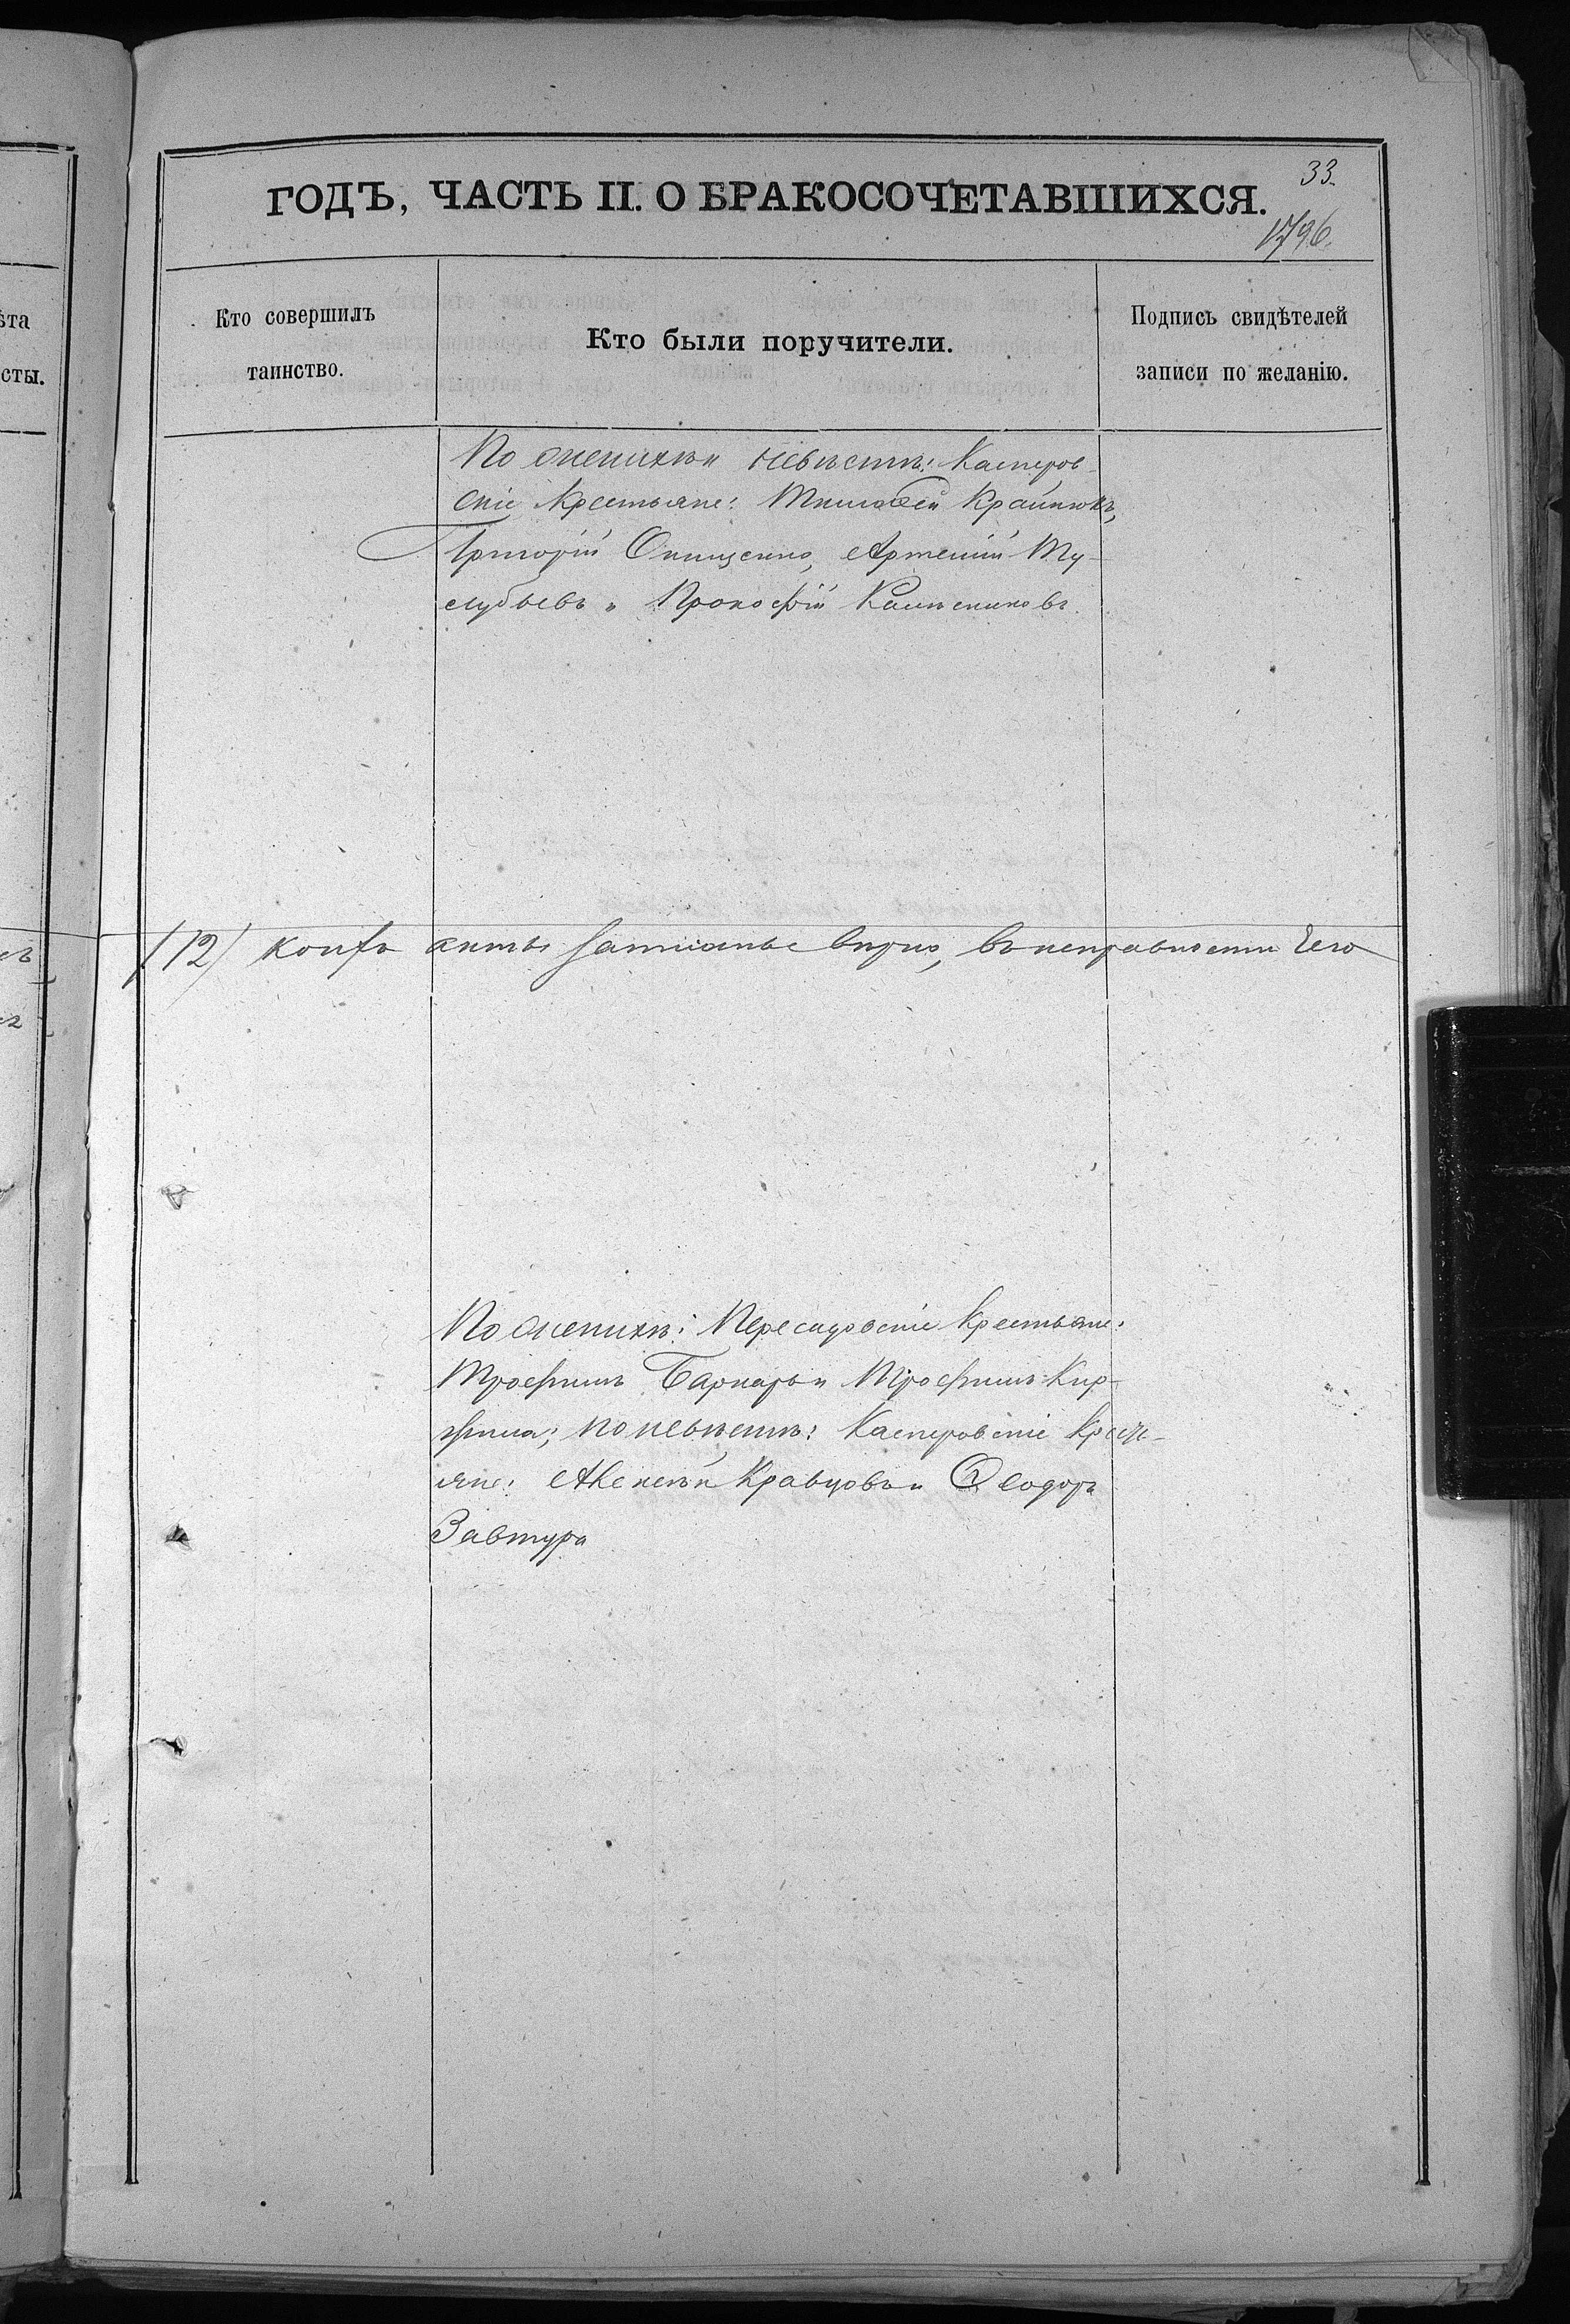 ѣта
сты.
33.
ГОДЪ, ЧАСТЬ II. О БРАКОСОЧЕТАВШИХСЯ.
1796.
Кто совершилъ
таинство.
Кто были поручители.
Подпись свидѣтелей
записи по желанію.
По женихѣ и невѣстѣ: Касперов
скіе Крестьяне: Тимофей Крайнюкъ,
Григорій Онищенко, Артемій
и Прокофій Колесниковъ
(12) актъ записанъ вѣрно, въ исправности чего
По женихѣ: Пересадовскіе Крестьяне:
Трофимъ Бармаръ и Трофимъ Кир-
; по невѣстѣ: Касперовскіе Крест-
яне: Алексѣй Кравцовъ и Ѳеодоръ
Завтура